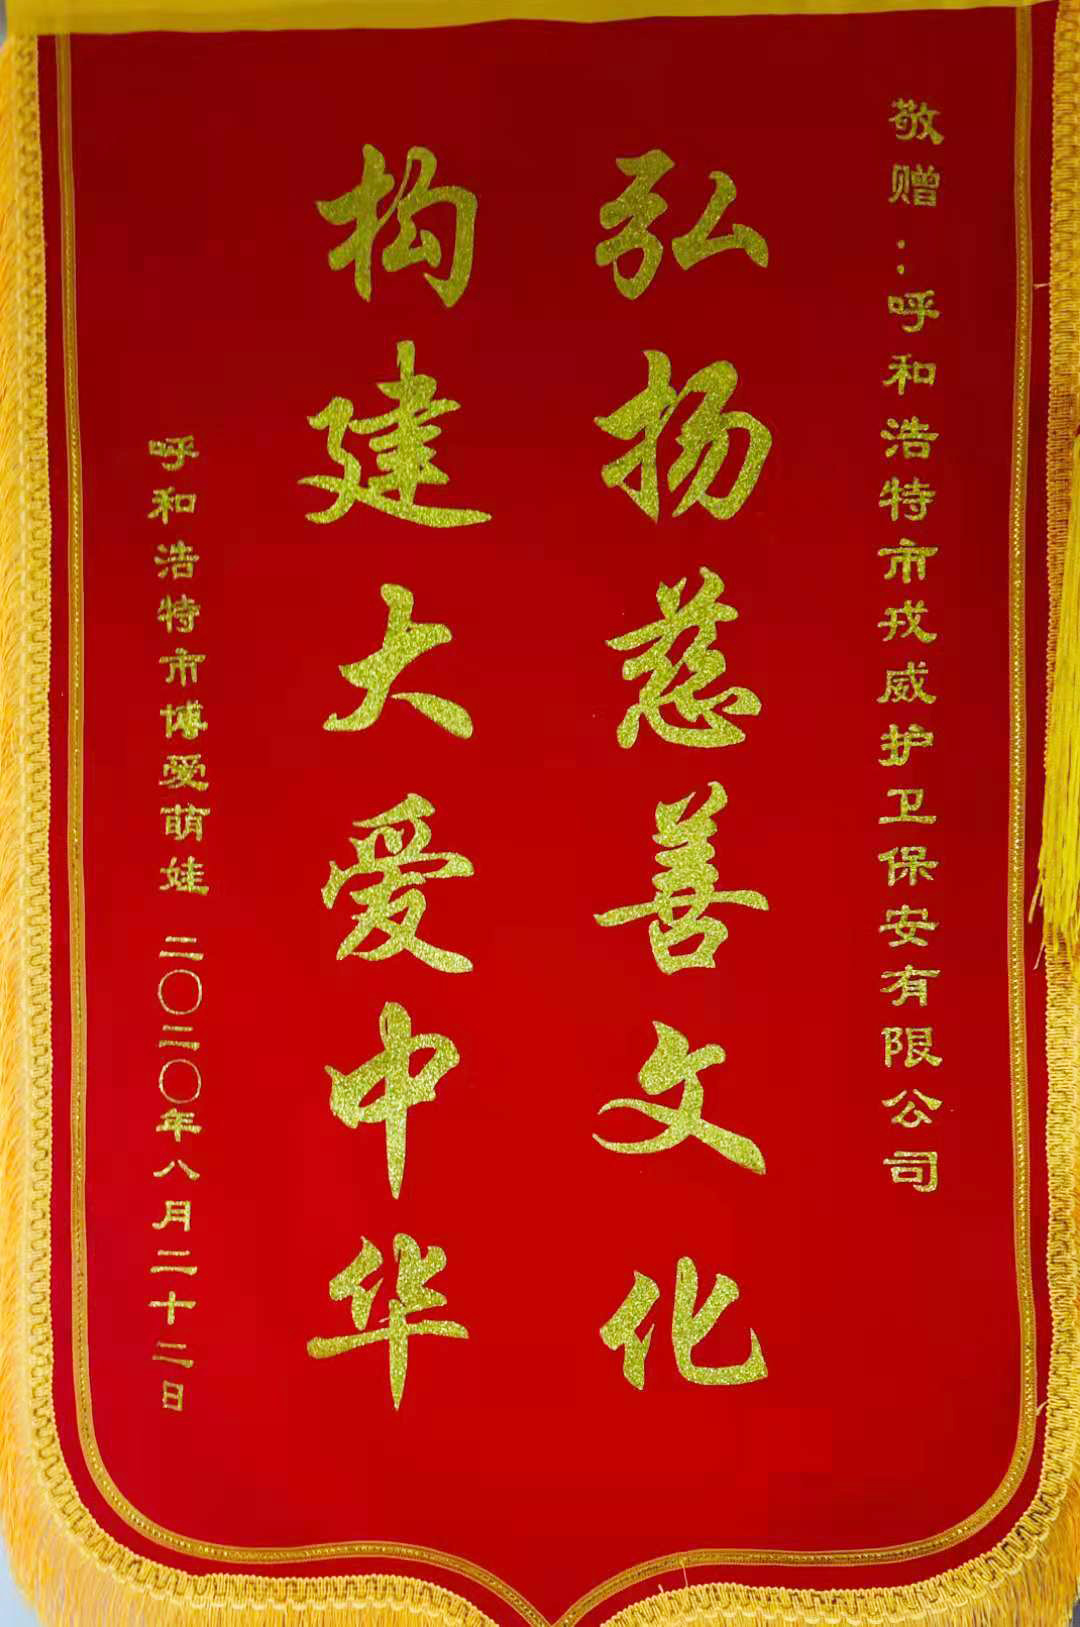 敬赠：呼和浩特市戎威护卫保安有限公司
弘扬慈善文化
构建大爱中华
呼和浩特市博爱萌娃 二〇二〇年八月二十二日